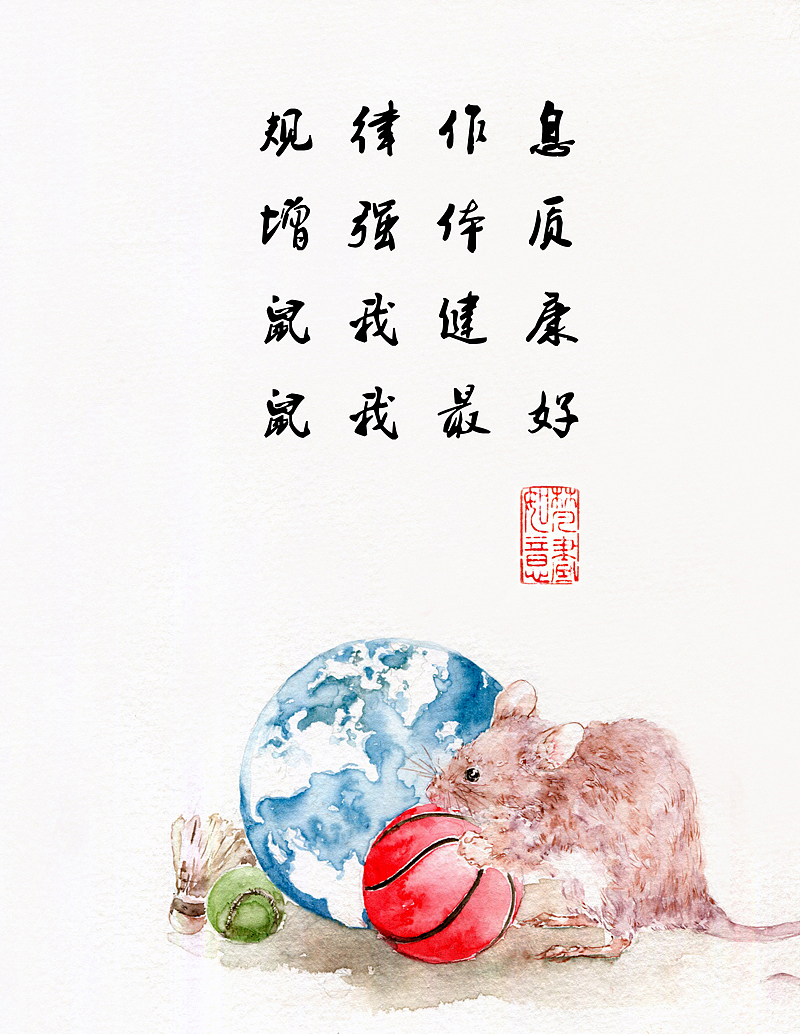 规律作息
增强体质
鼠我健康
鼠我最好
梦画
如意